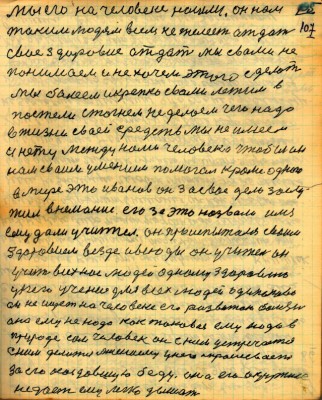 107
мы его на человеке нашли. он нам
таким людям всем желает отдат
свое здоровие отдат мы сами не
понимаем и не хочем этого сделат
мы болеем и крепко сами лежим в
постели стогнем не делаем чего надо
в жизни своей средств мы не имеем
и нету между нами человека чтобы он
нам своим умением помогал кроме одного
в мире это иванов он за свое дело заслу
жил внимание его за это назвали
ему дали учител. он
здоровием везде и всюду он учител он
учит всех нас людей одному здоровию
у него учение для всех людей одинаково
он не ищет на человеке его развитой
оно ему не надо как таковое ему надо в
природе сам человек он с ним встречаетс
с ним делитс у него спрашивает
за его находившую беду. она его окружил
недает ему легко дышат